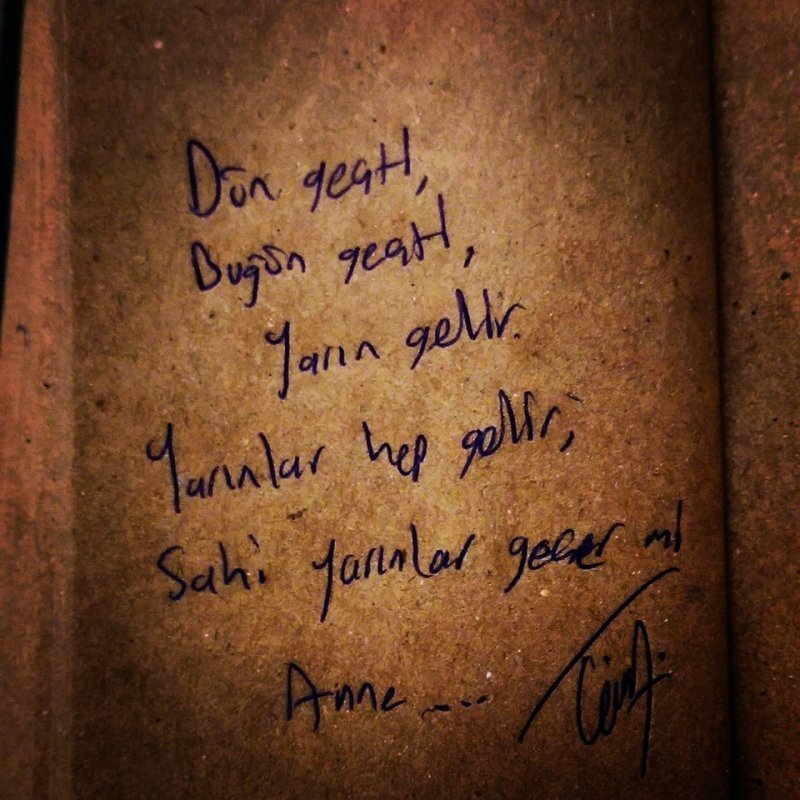 Dün geçti,
Bugün geçti,
Yarın gelir.
Yarınlar hep gelir,
Sahi yarınlar geçer mi
Anne ....